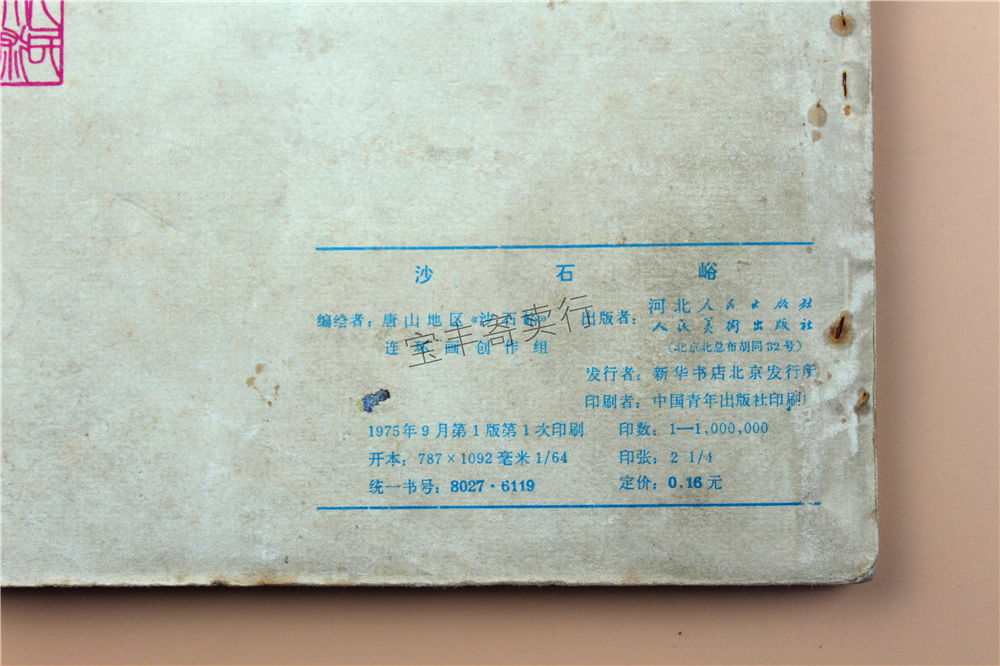 沙石峪
编绘者：唐山地区《沙石峪》
连环画创作组
出版者：河北人民出版社
人民美術出版社
（北京北总布胡同32号）
发行者：新华书店北京发行所
印刷者：中国青年出版社印刷厂
1975年9月第1版第1次印刷 印数：1—1,000,000
开本：787×1092毫米1/64 印张：2 1/4
统一书号：8027·6119 定价：0.16元
宝丰斋卖行